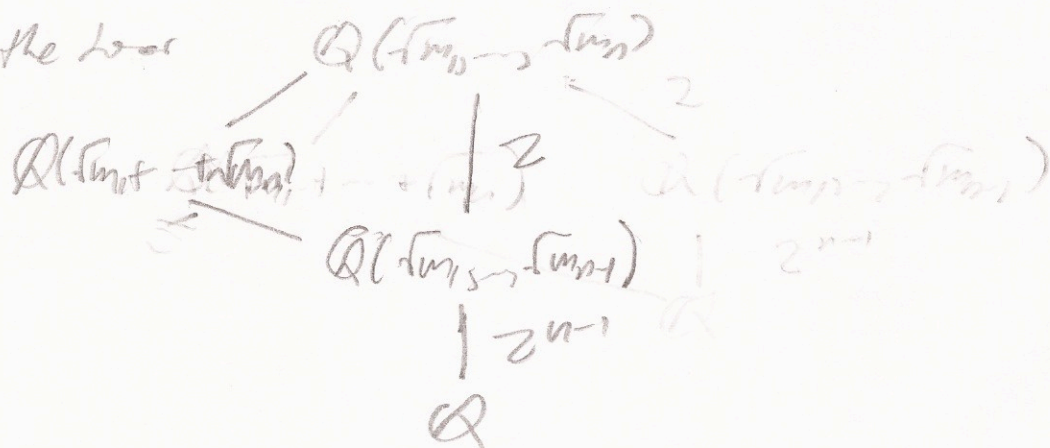 the Q(√m₁, ..., √mₙ)
2
Q(√m₁ + ... + √mₙ) 2 Q(√m₁, ..., √mₙ₋₁)
Q(√m₁, ..., √mₙ₋₁) 2ⁿ⁻¹
2ⁿ⁻¹ Q
Q